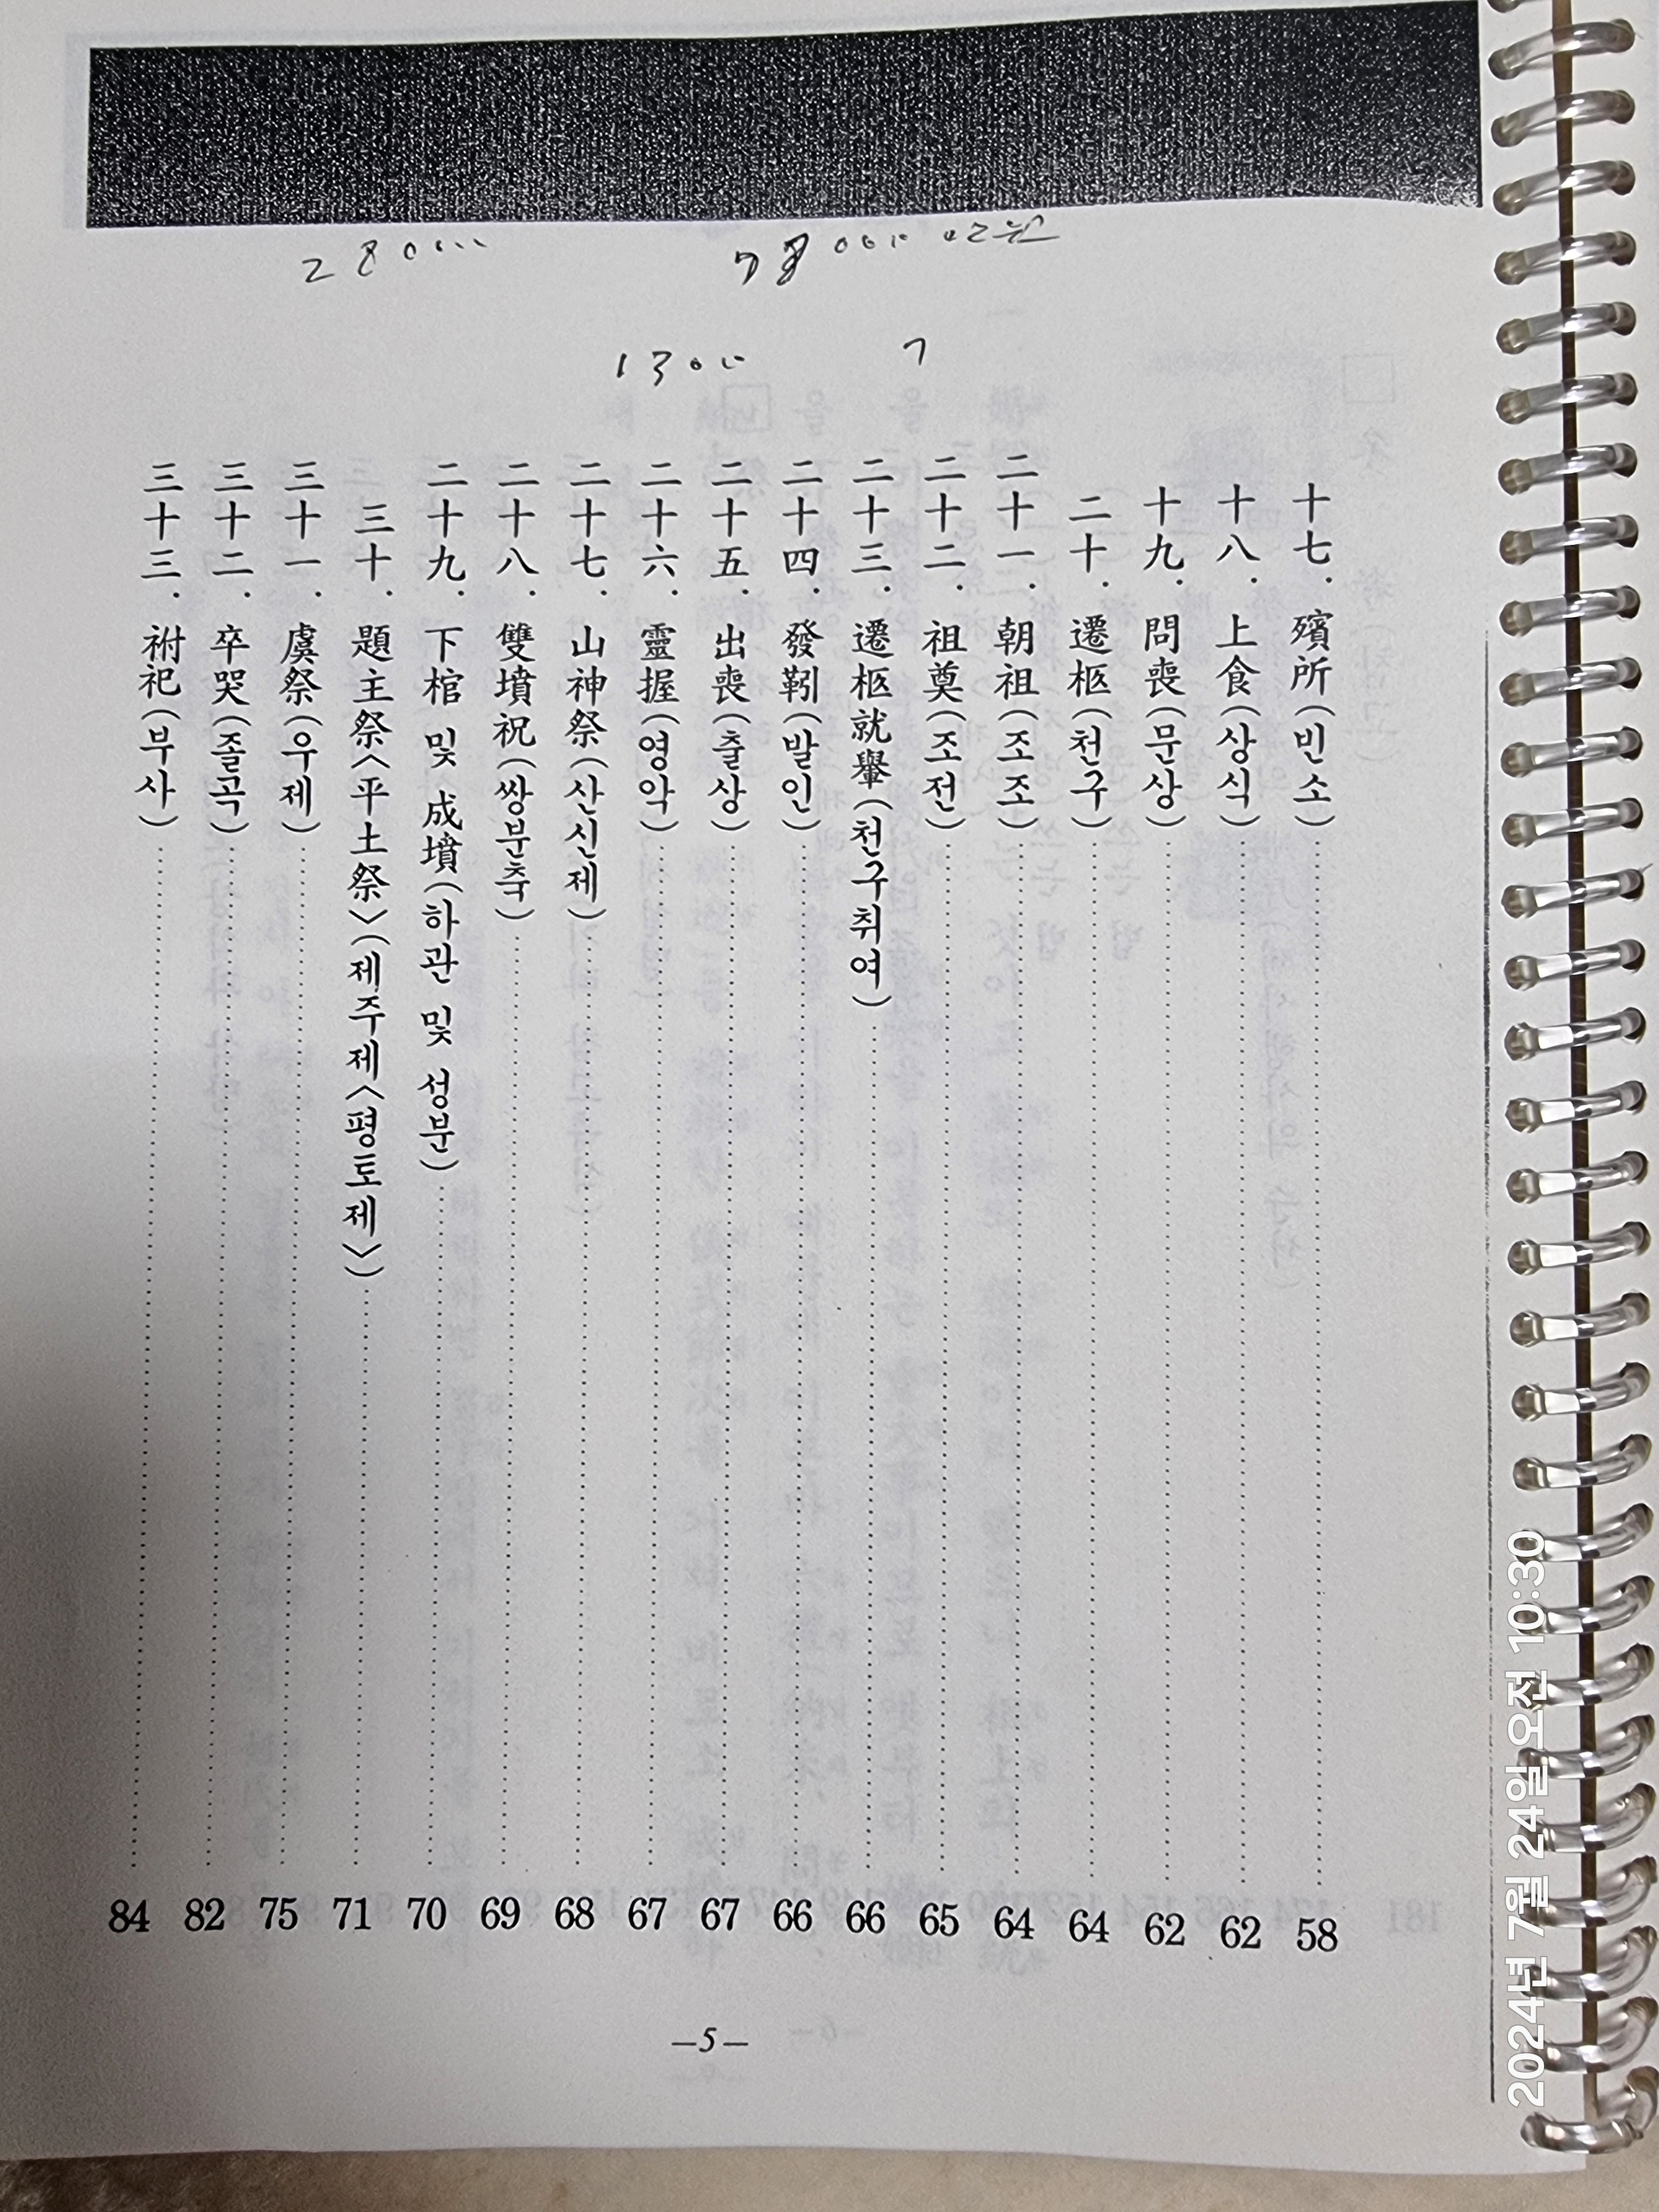 十七. 殯所(빈소) 58
十八. 上食(상식) 62
十九. 問喪(문상) 62
二十. 遷柩(천구) 64
二十一. 朝祖(조조) 64
二十二. 祖奠(조전) 65
二十三. 遷柩就轝(천구취여) 66
二十四. 發靷(발인) 66
二十五. 出喪(출상) 67
二十六. 靈握(영악) 67
二十七. 山神祭(산신제) 68
二十八. 雙墳祝(쌍분축) 69
二十九. 下棺 및 成墳(하관 및 성분) 70
三十. 題主祭〈平土祭〉(제주제〈평토제〉) 71
三十一. 虞祭(우제) 75
三十二. 卒哭(졸곡) 82
三十三. 祔祀(부사) 84
—5—
2024년 7월 24일 오전 10:30